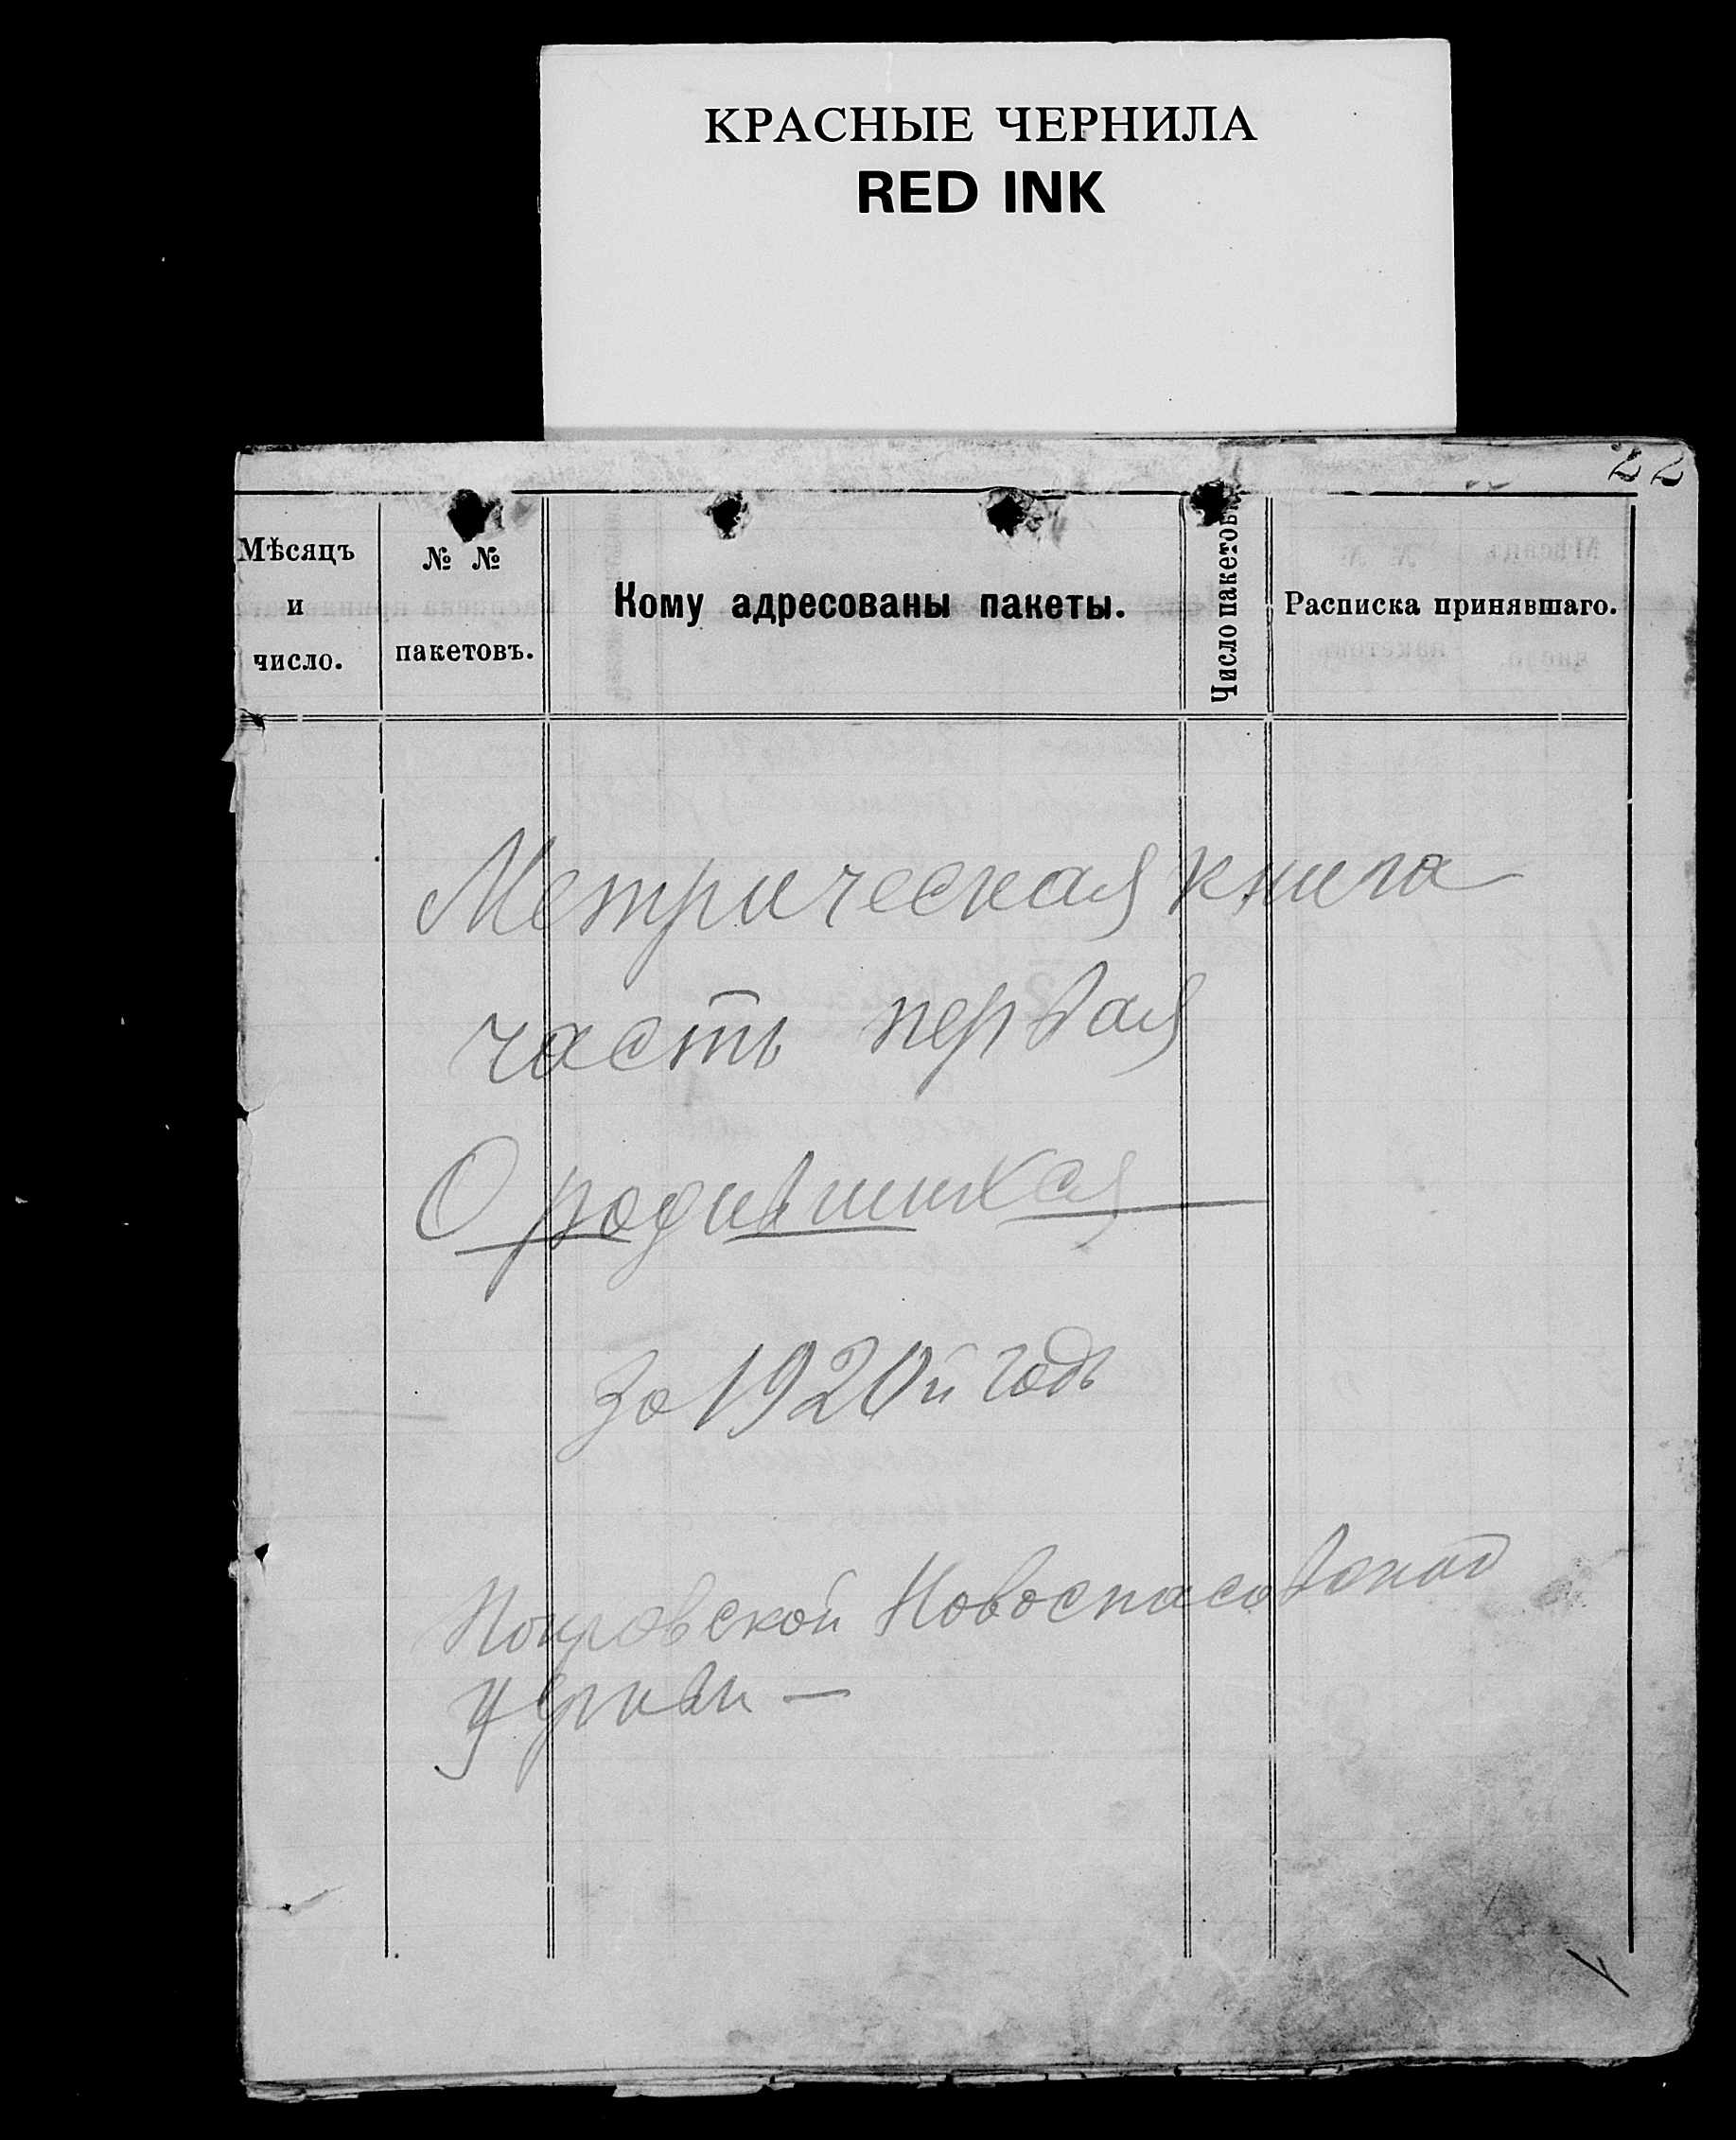 КРАСНЫЕ ЧЕРНИЛА
RED INK
22
Мѣсяцъ
и
число.
№ №
пакетовъ.
Кому адресованы пакеты.
Число пакетовъ
Расписка принявшаго.
Метрическая книга
часть первая
О родившихся
За 1920й годъ
Покровской Новоспасовской
церкви —